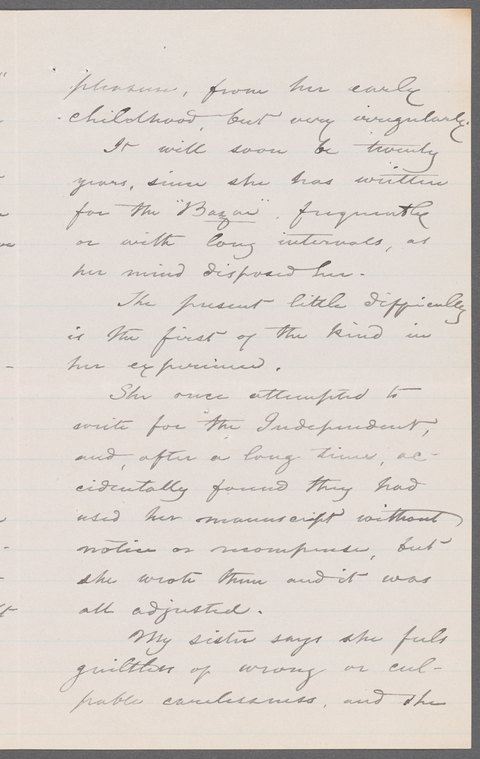 pleasure, from her early
childhood, but very irregularly.
It will soon be twenty
years, since she has written
for the "Bazar", frequently
or with long intervals, as
her mind disposed her.
The present little difficulty
is the first of the kind in
her experience.
She once attempted to
write for the Independent,
and, after a long time, ac-
cidentally found they had
used her manuscript without
notice or recompense, but
she wrote them and it was
all adjusted.
My sister says she feels
guiltless of wrong or cul-
pable carelessness, and she